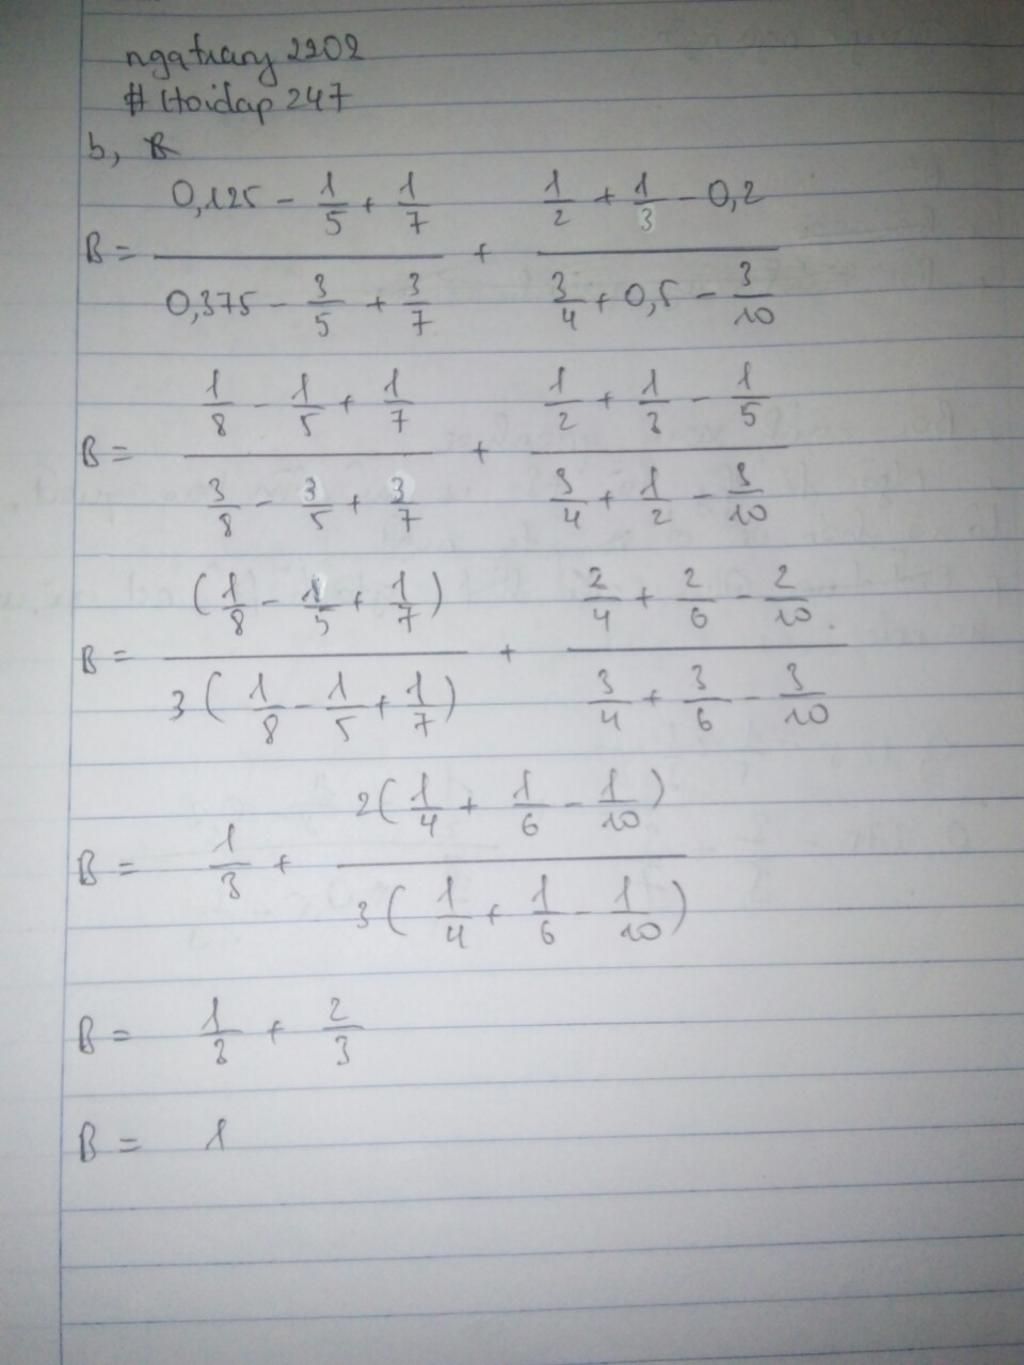 ngatrang 2202
# Hoidap 247
b, B
B = \frac{0,125 - \frac{1}{5} + \frac{1}{7}}{0,375 - \frac{3}{5} + \frac{3}{7}} + \frac{\frac{1}{2} + \frac{1}{3} - 0,2}{\frac{3}{4} + 0,5 - \frac{3}{10}}
B = \frac{\frac{1}{8} - \frac{1}{5} + \frac{1}{7}}{\frac{3}{8} - \frac{3}{5} + \frac{3}{7}} + \frac{\frac{1}{2} + \frac{1}{3} - \frac{1}{5}}{\frac{3}{4} + \frac{1}{2} - \frac{3}{10}}
B = \frac{(\frac{1}{8} - \frac{1}{5} + \frac{1}{7})}{3(\frac{1}{8} - \frac{1}{5} + \frac{1}{7})} + \frac{\frac{2}{4} + \frac{2}{6} - \frac{2}{10}}{\frac{3}{4} + \frac{3}{6} - \frac{3}{10}}
B = \frac{1}{3} + \frac{2(\frac{1}{4} + \frac{1}{6} - \frac{1}{10})}{3(\frac{1}{4} + \frac{1}{6} - \frac{1}{10})}
B = \frac{1}{3} + \frac{2}{3}
B = 1